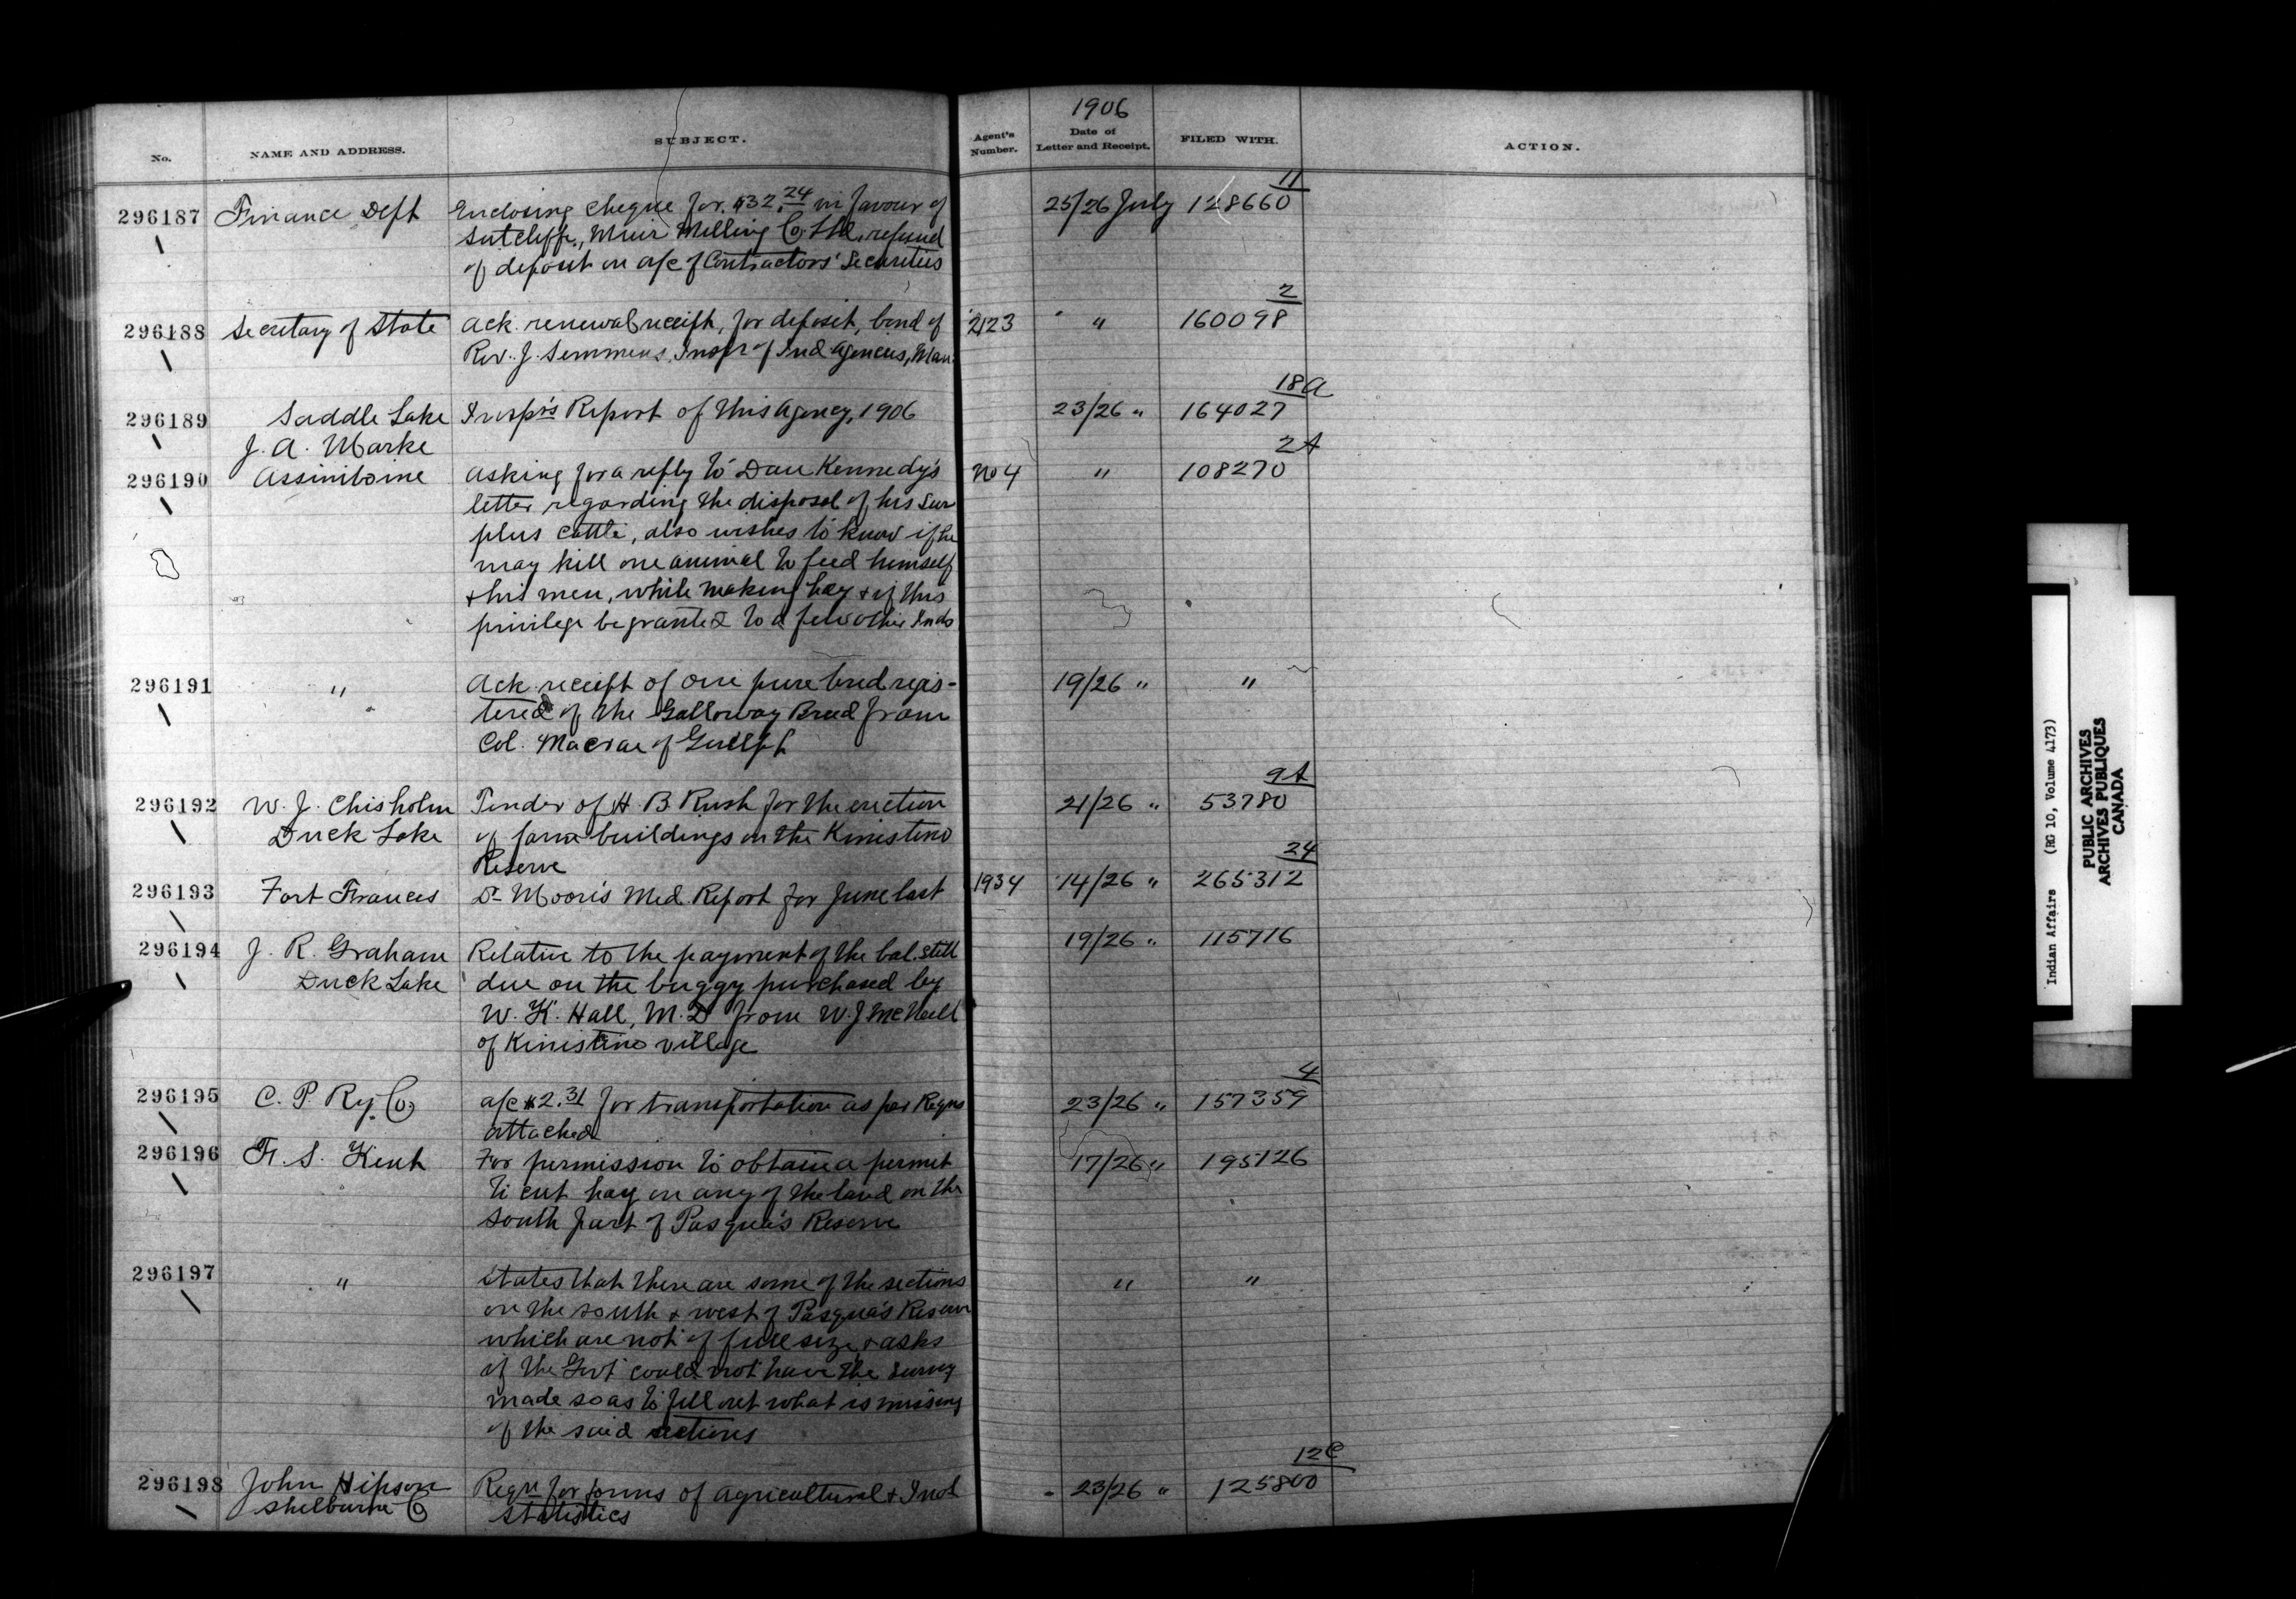 1906
No.
NAME AND ADDRESS.
SUBJECT.
Agent's Number.
Date of Letter and Receipt.
FILED WITH.
ACTION.
11
296187 Finance Dept Enclosing cheque for $32.24 in favour of 25/26 July 128660
Sutcliffe, Muir Milling Co. Ltd, refund
of deposit on a/c of Contractors' Securities
2
296188 Secretary of State Ack. renewal receipt, for deposit, bond of 2123 " 160098
Rev. J. Semmens, Inspr of Ind Agencies, Man.
18a
296189 Saddle Lake Inspr's Report of this Agency, 1906 23/26 " 164027
J. A. Marke
2A
296190 Assiniboine Asking for a reply to Dan Kennedy's No 4 " 108270
letter regarding the disposal of his sur
plus cattle, also wishes to know if he
may kill one animal to feed himself
& his men, while making hay & if this
privilege be granted to a few other Inds
296191 " Ack. receipt of one pure bred regis- 19/26 " "
tered of the Galloway Breed from
Col. Macrae of Guelph
9A
296192 W. J. Chisholm Tender of H. B. Rush for the erection 21/26 " 53780
Duck Lake of farm buildings on the Kinistino
Reserve
24
296193 Fort Frances Dr Moore's Med. Report for June last 1934 14/26 " 265312
296194 J. R. Graham Relative to the payment of the bal. still 19/26 " 115716
Duck Lake due on the buggy purchased by
W. K. Hall, M.D from W. J McNeill
of Kinistino village
4
296195 C. P. Ry. Co, a/c $2.31 for transportation as per Reqns 23/26 " 157359
attached
296196 F. S. Kent For permission to obtain a permit 17/26 " 195126
to cut hay on any of the land on the
South part of Pasqua's Reserve
296197 " States that there are some of the sections " "
on the south & west of Pasqua's Reserve
which are not of full size, & asks
if the Govt could not have the survey
made so as to fill out what is missing
of the said sections
12C
296198 John Hipson Reqn for forms of agricultural & Indl 23/26 " 125800
Shelburne Co Statistics
Indian Affairs (RG 10, Volume 4173)
PUBLIC ARCHIVES
ARCHIVES PUBLIQUES
CANADA